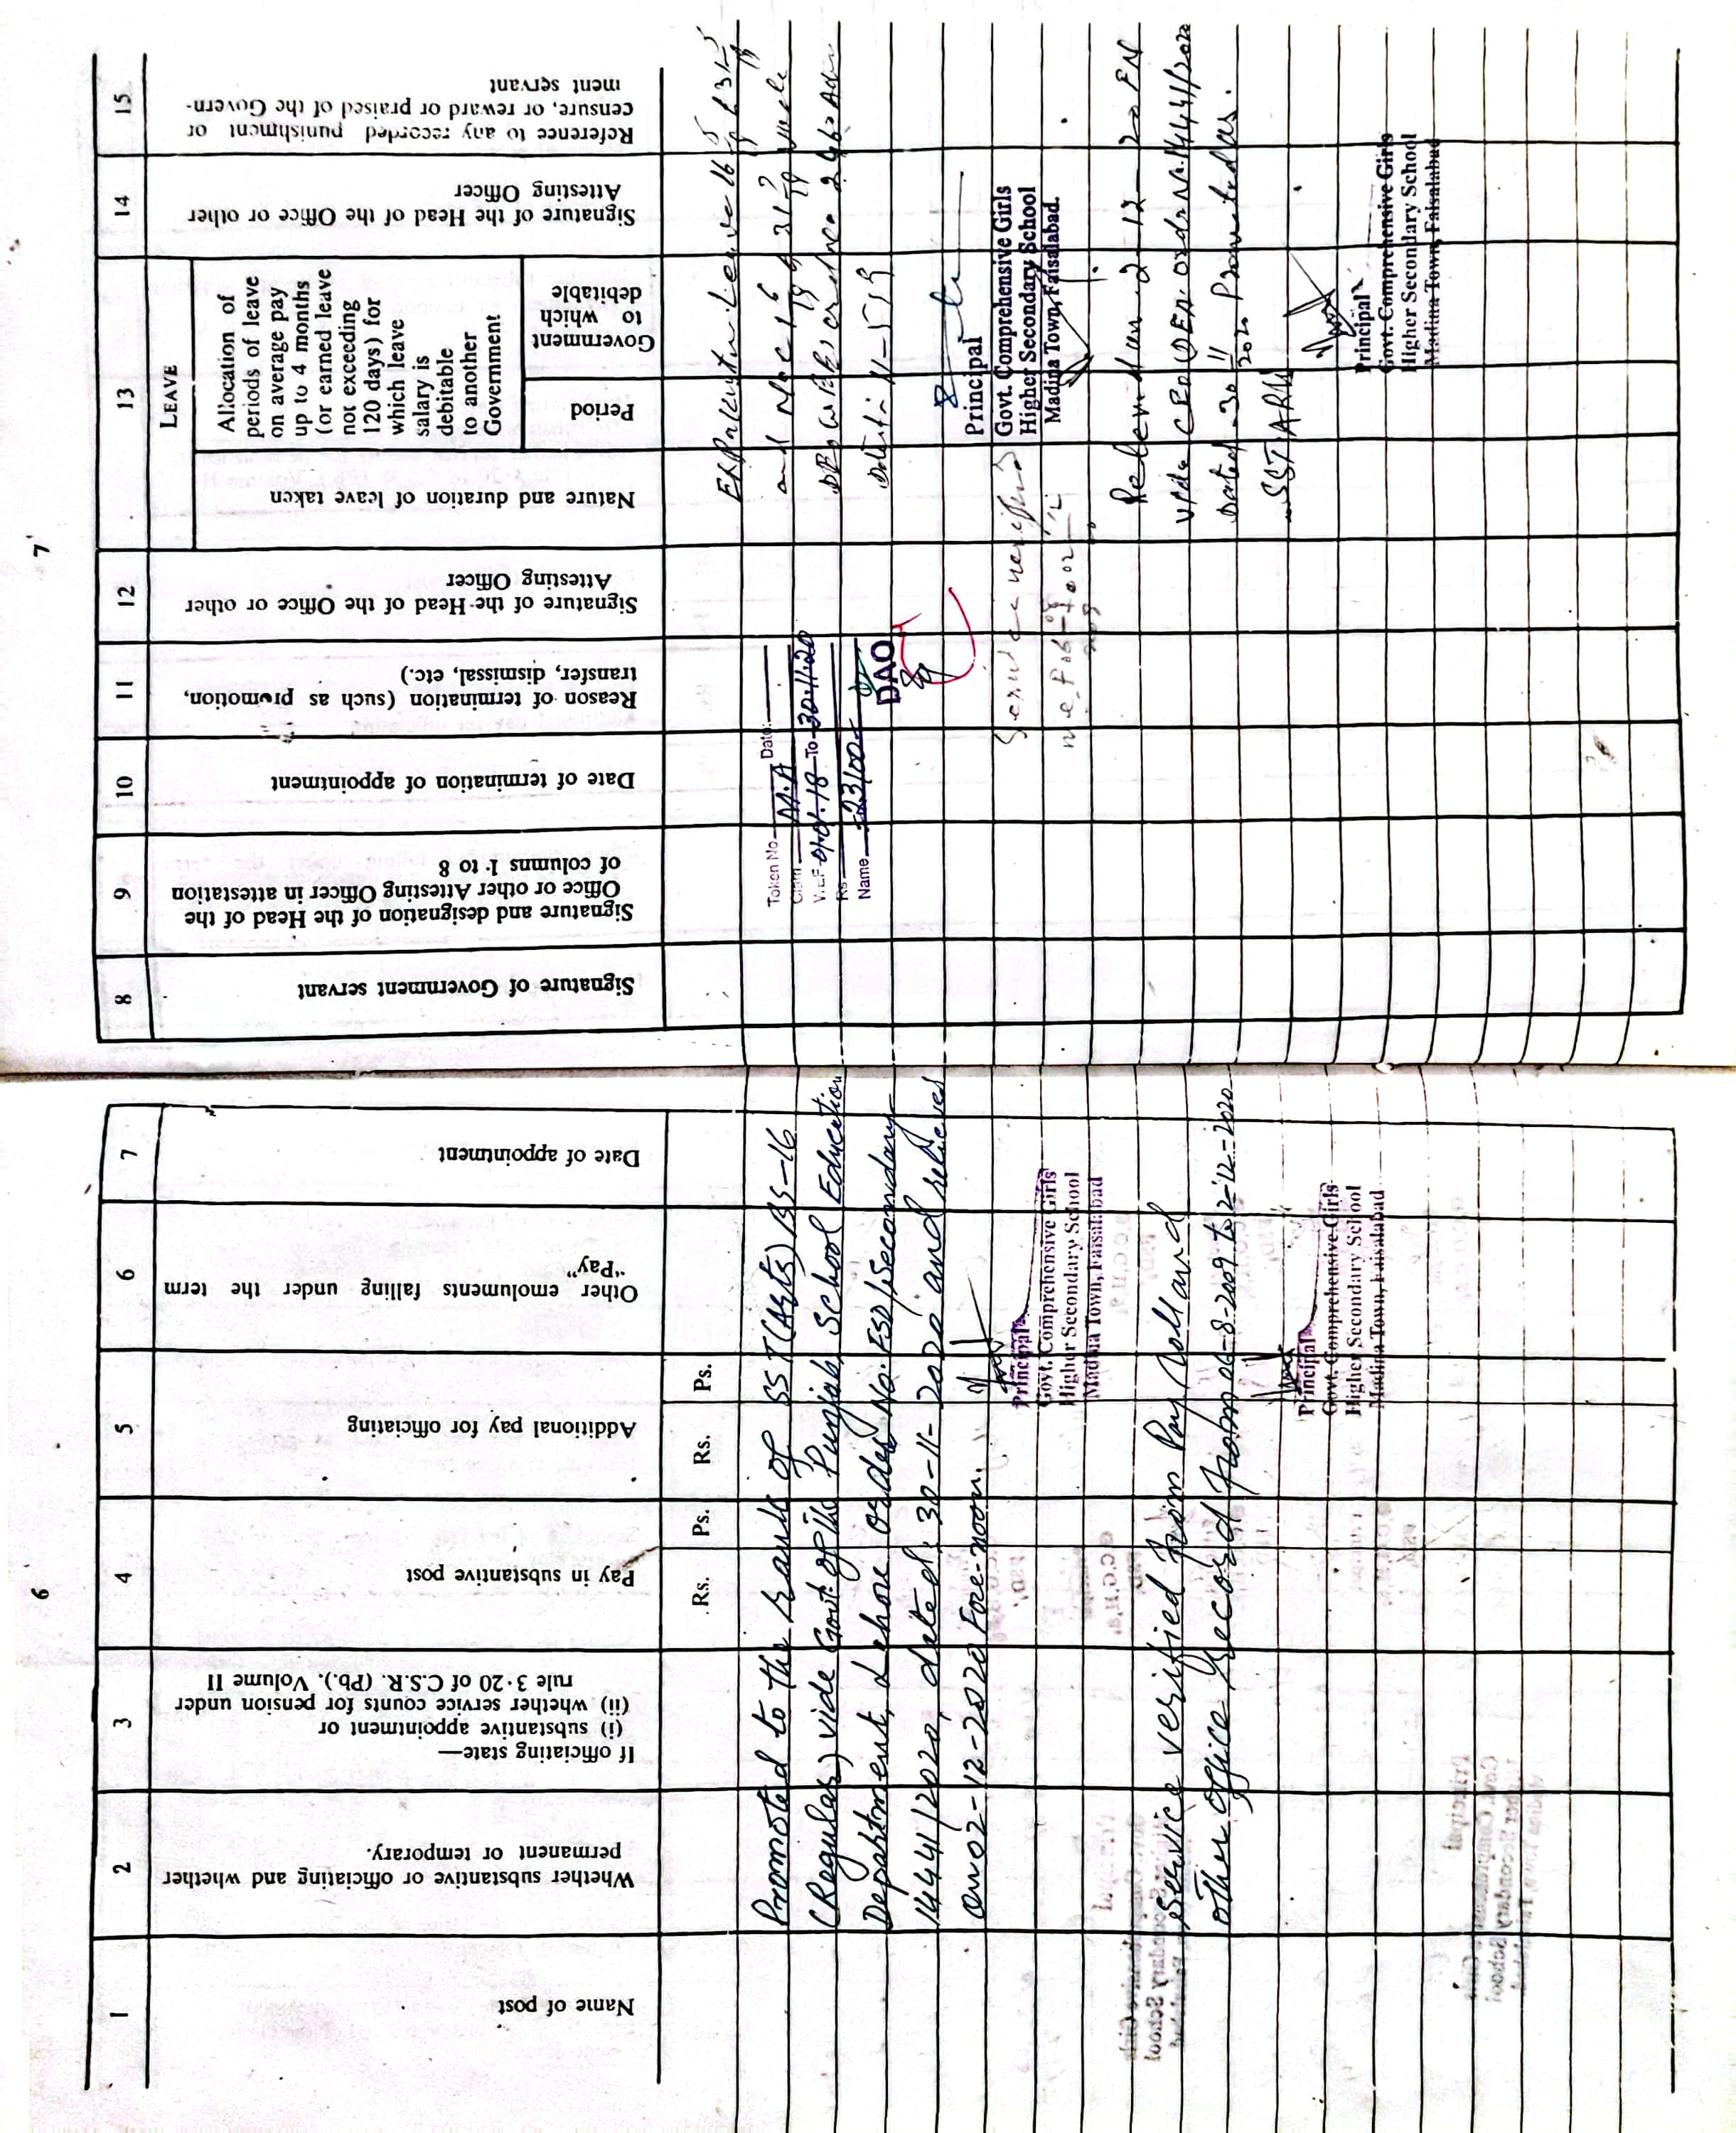 6
1
2
3
4
5
6
7
Name of post
Whether substantive or officiating and whether
permanent or temporary.
If officiating state—
(i) substantive appointment or
(ii) whether service counts for pension under
rule 3·20 of C.S.R. (Pb.). Volume II
Pay in substantive post
Additional pay for officiating
Other emoluments falling under the term
"Pay"
Date of appointment
Rs.
Ps.
Rs.
Ps.
Promoted to the Rank of SST(Arts) BS-16
(Regular) vide Govt of the Punjab, School Education
Department, Lahore order No. FSD/Secondary-
14441/2020, dated. 30-11-2020 and relieved
on 02-12-2020 Fore-noon.
Principal
Govt. Comprehensive Girls
Higher Secondary School
Madina Town, Faisalabad
Service verified from Pay Roll and
other office Record from 06-8-2009 to 2-12-2020
Principal
Govt. Comprehensive Girls
Higher Secondary School
Madina Town, Faisalabad
7
8
9
10
11
12
13
14
15
Signature of Government servant
Signature and designation of the Head of the
Office or other Attesting Officer in attestation
of columns 1 to 8
Date of termination of appointment
Reason of termination (such as promotion,
transfer, dismissal, etc.)
Signature of the Head of the Office or other
Attesting Officer
LEAVE
Nature and duration of leave taken
Allocation of
periods of leave
on average pay
up to 4 months
(or earned leave
not exceeding
120 days) for
which leave
salary is
debitable
to another
Government
Period
Government
to which
debitable
Signature of the Head of the Office or other
Attesting Officer
Reference to any recorded punishment or
censure, or reward or praised of the Govern-
ment servant
Token No. Date:
Claim M.A
W.E.F 01-01-18 To 30-11-20
Rs 23100
Name
DAO
Leave 16
and
Principal
Govt. Comprehensive Girls
Higher Secondary School
Madina Town, Faisalabad.
Service verified
Relieved on 2-12-20 FN
vide CEO (DEA) order No. 14441/2020
Dated 30-11-2020 Promoted as
SST Arts
Principal
Govt. Comprehensive Girls
Higher Secondary School
Madina Town, Faisalabad